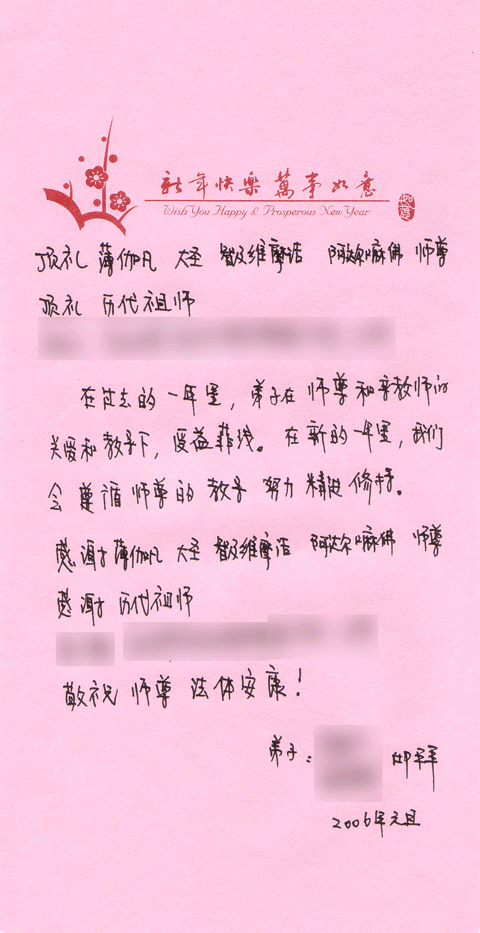 新年快樂萬事如意
Wish You Happy & Prosperous New Year
如意
顶礼 薄伽凡 大圣 智及维摩诘 阿达尔嘛佛 师尊
顶礼 历代祖师
在过去的一年里，弟子在师尊和亲教师的
关爱和教导下，受益菲浅。在新的一年里，我们
会遵循师尊的教导 努力精进修持。
感谢 薄伽凡 大圣 智及维摩诘 阿达尔嘛佛 师尊
感谢 历代祖师
敬祝 师尊 法体安康！
弟子： 叩拜
2006年元旦